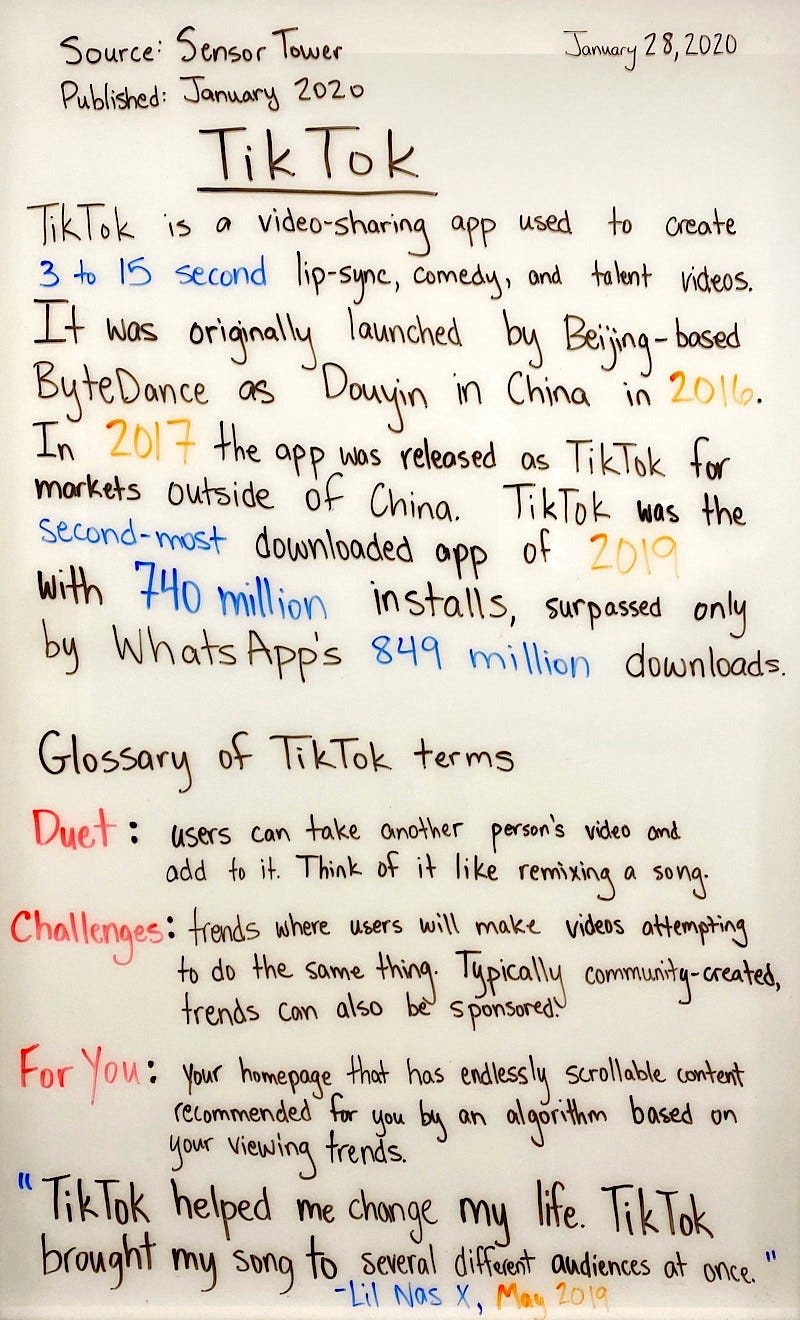 Source: Sensor Tower
January 28, 2020
Published: January 2020
TikTok
TikTok is a video-sharing app used to create
3 to 15 second lip-sync, comedy, and talent videos.
It was originally launched by Beijing-based
ByteDance as Douyin in China in 2016.
In 2017 the app was released as TikTok for
markets outside of China. TikTok was the
second-most downloaded app of 2019
with 740 million installs, surpassed only
by WhatsApp's 849 million downloads.
Glossary of TikTok terms
Duet: users can take another person's video and
add to it. Think of it like remixing a song.
Challenges: trends where users will make videos attempting
to do the same thing. Typically community-created,
trends can also be sponsored.
For You: your homepage that has endlessly scrollable content
recommended for you by an algorithm based on
your viewing trends.
"TikTok helped me change my life. TikTok
brought my song to several different audiences at once."
-Lil Nas X, May 2019